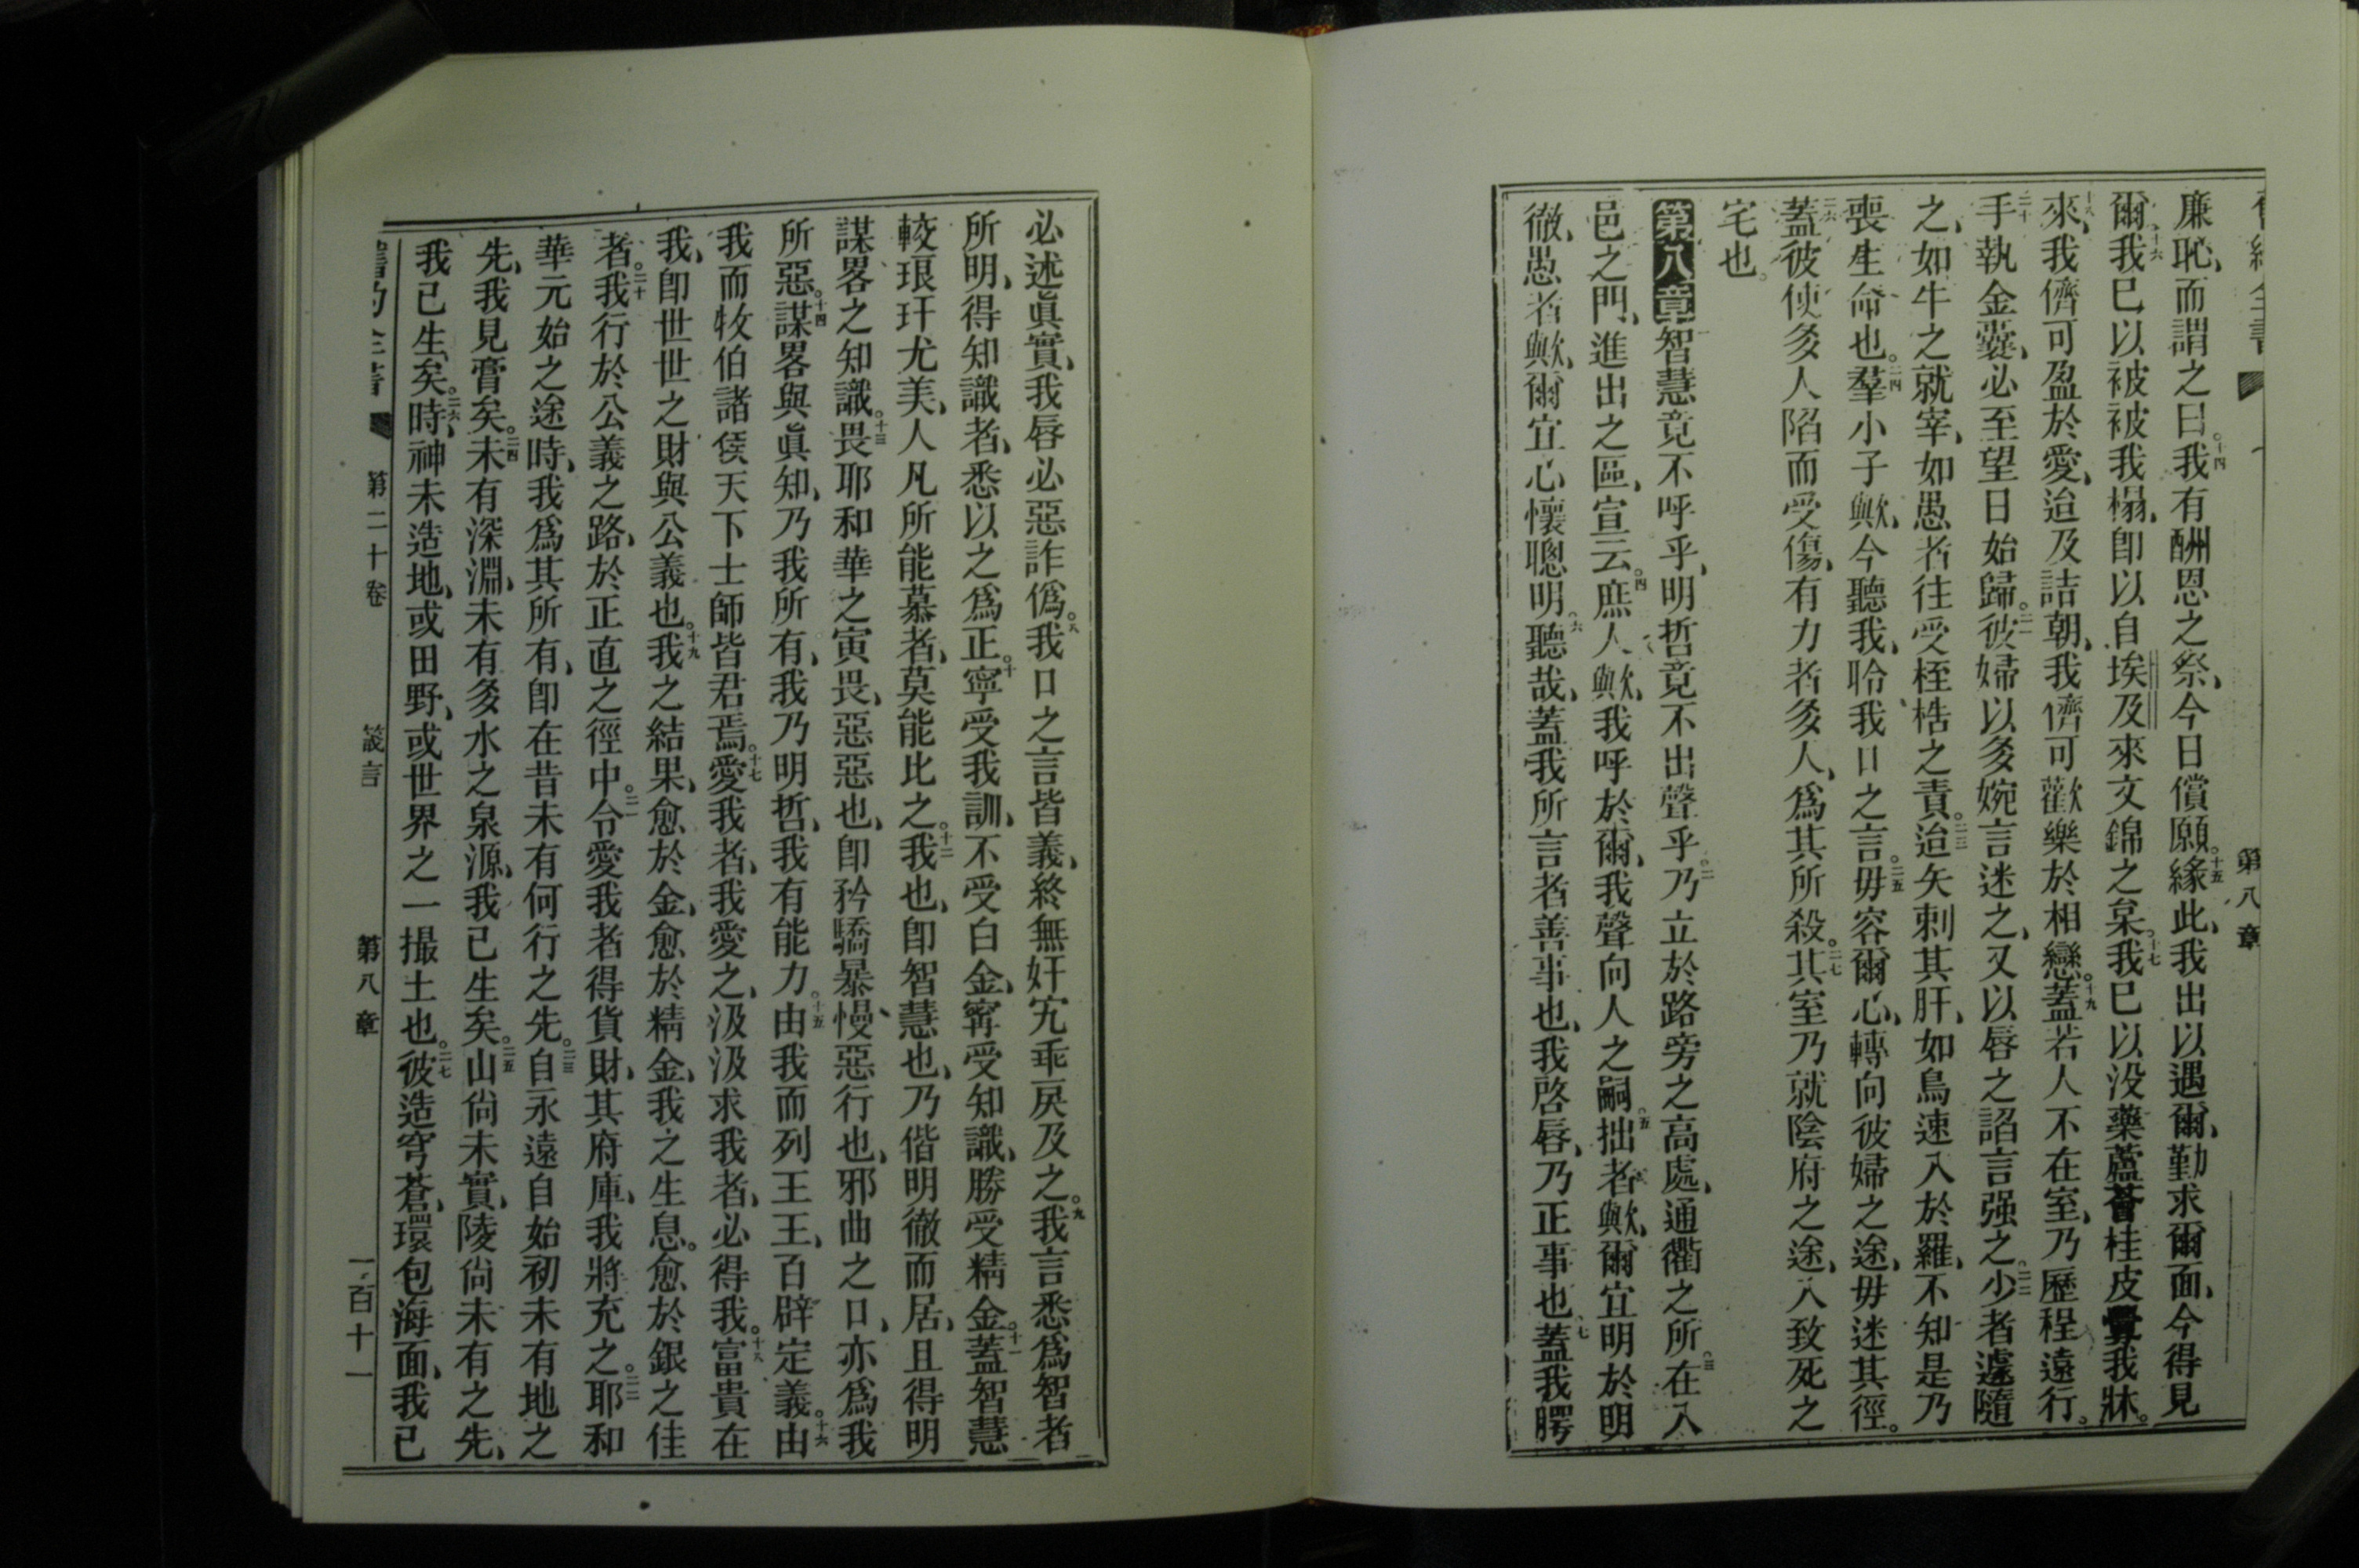 第八章
廉恥、而謂之曰。十四我有酬恩之祭、今日償願。十五緣此、我出以遇爾、勤求爾面、今得見
爾、十六我已以被被我榻、卽以自埃及來文錦之枲。十七我已以没藥蘆薈桂皮釁我牀。
十八來、我儕可盈於愛、迨及詰朝、我儕可歡樂於相戀。十九蓋若人不在室、乃歷程遠行。
二十手執金囊、必至望日始歸。二一彼婦以多婉言迷之、又以唇之諂言强之。二二少者遽隨
之、如牛之就宰、如愚者往受桎梏之責。二三迨矢刺其肝、如鳥速入於羅、不知是乃
喪生命也。二四羣小子歟、今聽我、聆我口之言。二五毋容爾心、轉向彼婦之途、毋迷其徑。
二六蓋彼使多人陷而受傷、有力者多人、爲其所殺。二七其室乃就陰府之途、入致死之
宅也。
第八章智慧竟不呼乎、明哲竟不出聲乎。二乃立於路旁之高處、通衢之所。三在入
邑之門、進出之區、宣云。四庶人歟、我呼於爾、我聲向人之嗣。五拙者歟、爾宜明於明
徹、愚者歟、爾宜心懷聰明。六聽哉、蓋我所言者善事也、我啓唇、乃正事也。七蓋我腭
必述眞實、我唇必惡詐僞。八我口之言皆義、終無奸宄乖戾及之。九我言悉爲智者
所明、得知識者、悉以之爲正。十寧受我訓、不受白金、寗受知識、勝受精金。十一蓋智慧
較琅玕尤美、人凡所能慕者、莫能比之。十二我也、卽智慧也、乃偕明徹而居、且得明
謀畧之知識。十三畏耶和華之寅畏、惡惡也、卽矜驕暴慢惡行也、邪曲之口、亦爲我
所惡。十四謀畧與眞知、乃我所有、我乃明哲、我有能力。十五由我而列王王、百辟定義。十六由
我而牧伯諸侯天下士師皆君焉。十七愛我者、我愛之、汲汲求我者、必得我。十八富貴在
我、卽世世之財與公義也。十九我之結果、愈於金、愈於精金、我之生息。愈於銀之佳
者。二十我行於公義之路、於正直之徑中。二一令愛我者得貨財、其府庫、我將充之。二二耶和
華元始之途時、我爲其所有、卽在昔未有何行之先。二三自永遠自始初未有地之
先、我見膏矣。二四未有深淵、未有多水之泉源、我已生矣。二五山尙未實、陵尙未有之先、
我已生矣。二六時、神未造地、或田野、或世界之一撮土也。二七彼造穹蒼、環包海面、我已
第二十卷 箴言 第八章 一百十一